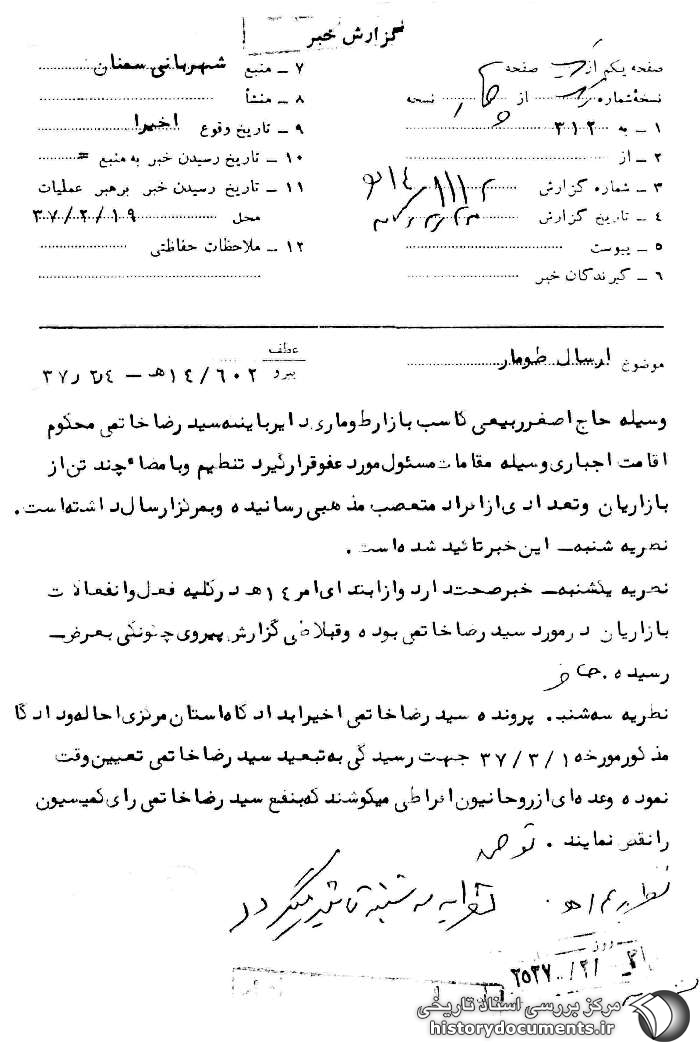 گزارش خبر
صفحه یکم از یک صفحه
نسخهٔ شماره یک از چهار نسخه
۱ – به ۳۱۲
۲ – از
۳ – شماره گزارش
۴ – تاریخ گزارش
۵ – پیوست
۶ – گیرندگان خبر
۷ – منبع شهربانی سمنان
۸ – منشأ
۹ – تاریخ وقوع اخیرا
۱۰ – تاریخ رسیدن خبر به منبع =
۱۱ – تاریخ رسیدن خبر برهبر عملیات
محل ۳۷/۲/۱۹
۱۲ – ملاحظات حفاظتی
موضوع ارسال طومار
عطف
پیرو ۱۴/۶۰۲ ه‍ –
وسیله حاج اصغر ربیعی کاسب بازار طوماری دایر باینه سید رضا خاتمی محکوم
اقامت اجباری وسیله مقامات مسئول مورد عفو قرار گیرد تنظیم و بامضاء چند تن از
بازاریان و تعدادی از افراد متعصب مذهبی رسانیده و بمرکز ارسال داشته است.
نظریه شنبه – این خبر تائید شده است.
نظریه یکشنبه – خبر صحت دارد و از ابتدای امر ۱۴ه‍ در کلیه فعل و انفعالات
بازاریان در مورد سید رضا خاتمی بوده و قبلا طی گزارش پیروی چگونگی بعرض –
رسیده.
نظریه سه شنبه. پرونده سید رضا خاتمی اخیرا بدادگاه استان مرکزی احاله و دادگا
مذکور مورخه ۳۷/۳/۱ جهت رسیدگی به تبعید سید رضا خاتمی تعیین وقت
نموده و عده ای از روحانیون افراطی میکوشند که بنفع سید رضا خاتمی رای کمیسیون
را نقض نمایند.
نظریه ۱ه‍. نظریه سه شنبه تائید میگردد
روز
۲۵۳۷/۲/
مرکز بررسی اسناد تاریخی
historydocuments.ir